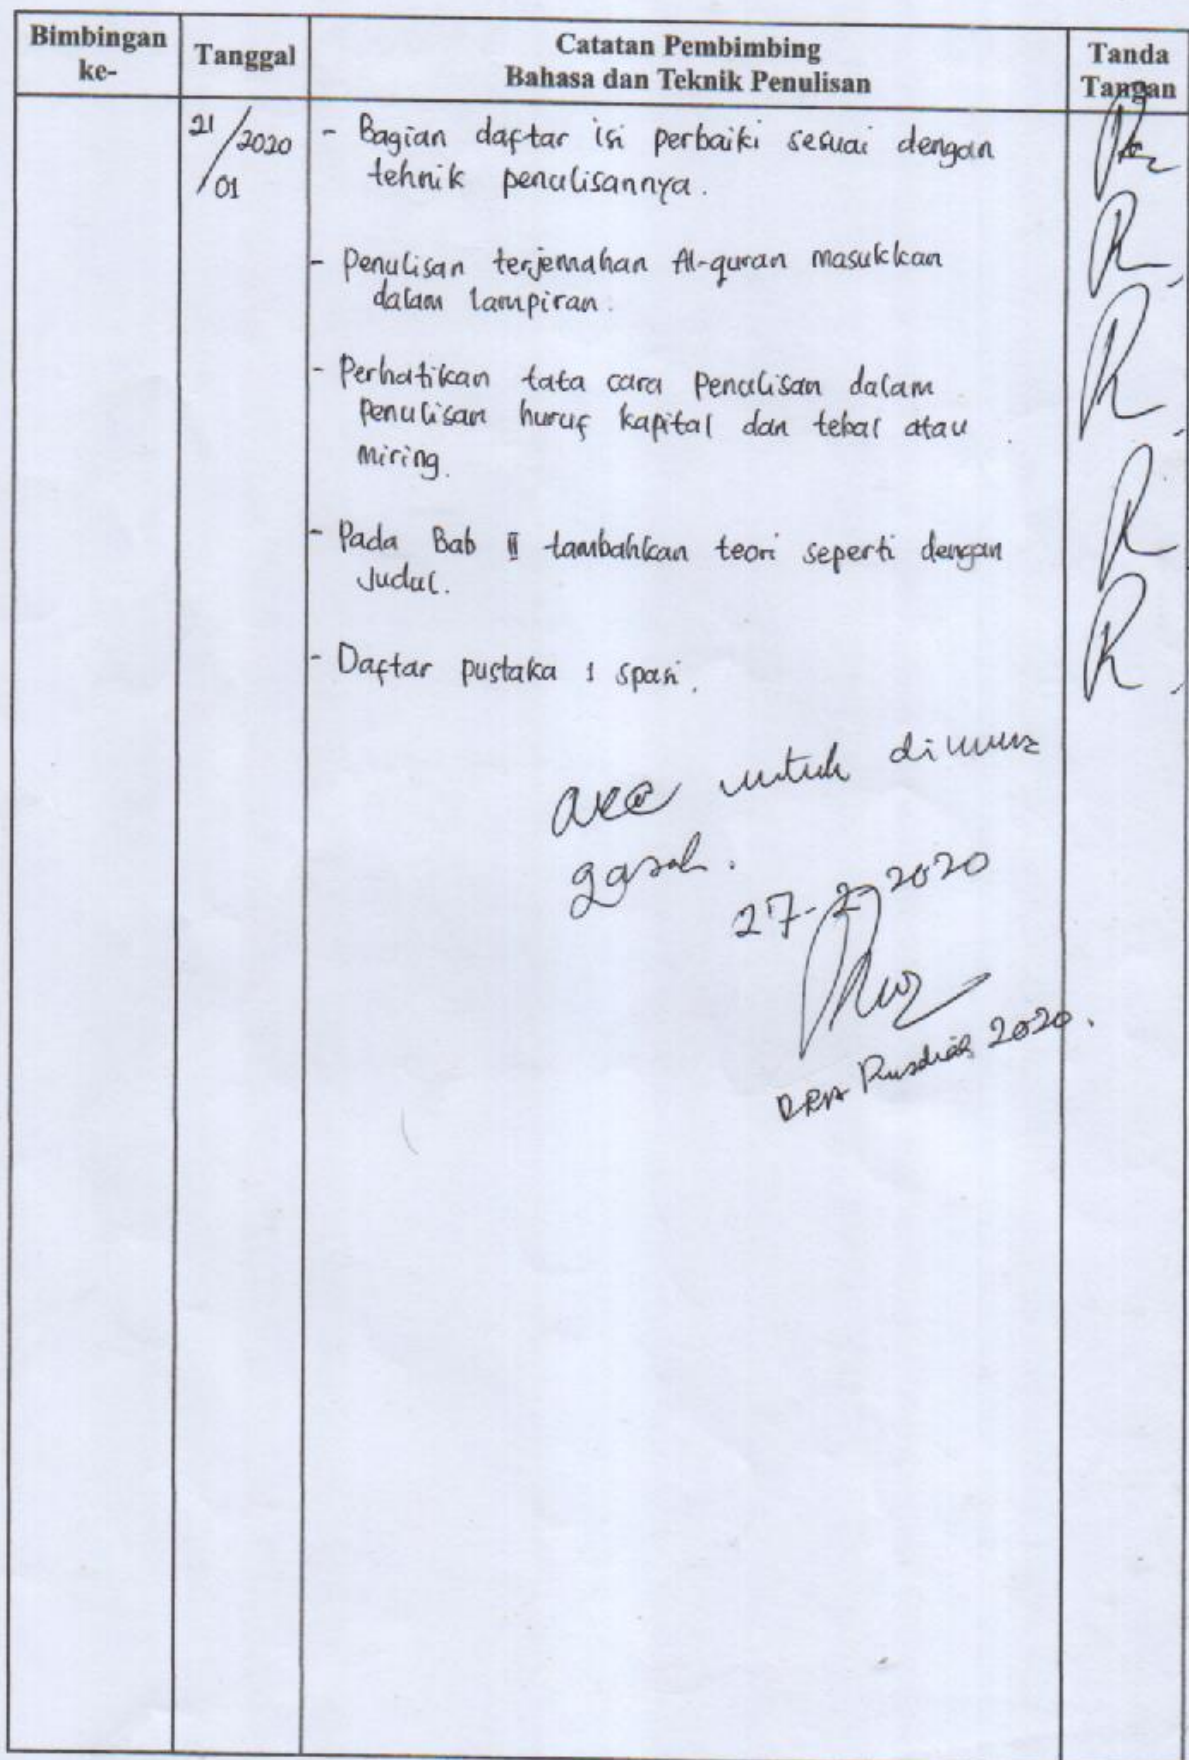 Bimbingan ke-
Tanggal
Catatan Pembimbing
Bahasa dan Teknik Penulisan
Tanda Tangan
21/01/2020
- Bagian daftar isi perbaiki sesuai dengan
tehnik penulisannya.
- Penulisan terjemahan Al-quran masukkan
dalam lampiran.
- Perhatikan tata cara penulisan dalam
penulisan huruf kapital dan tebal atau
miring.
- Pada Bab II tambahkan teori seperti dengan
Judul.
- Daftar pustaka 1 spasi.
untuk dimuna
qasah.
27-2-2020
2020.